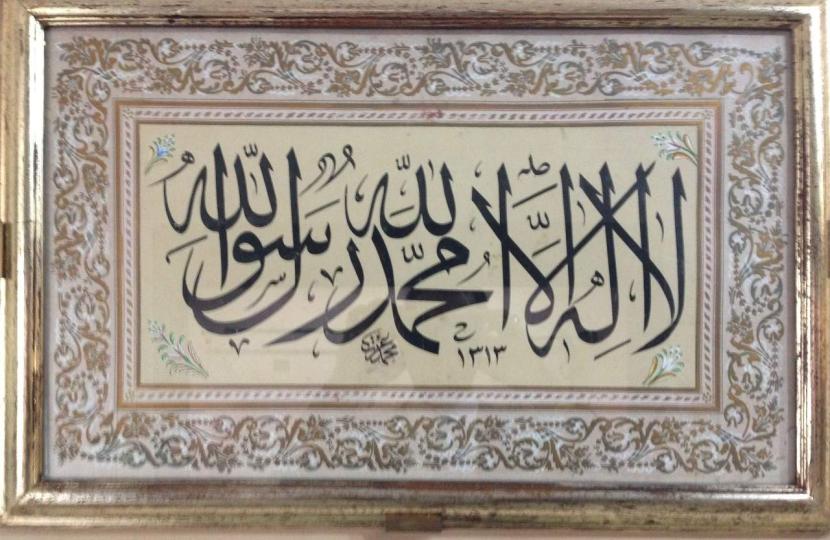 لا اله الا الله محمد رسول الله
١٣١٣